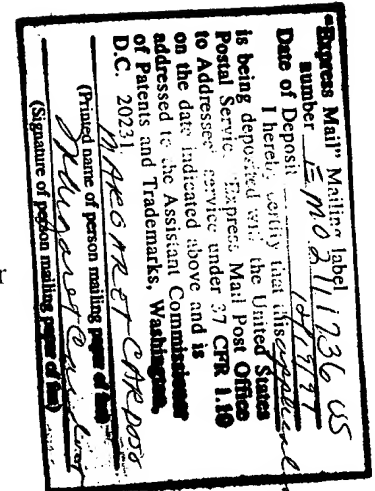 "Express Mail" Mailing label
number EM 02411736 US
Date of Deposit 12/19/97
I hereby certify that this application
is being deposited with the United States
Postal Service "Express Mail Post Office
to Addressee" service under 37 CFR 1.10
on the date indicated above and is
addressed to the Assistant Commissioner
of Patents and Trademarks, Washington,
D.C. 20231
MARGARET CARDOSO
(Printed name of person mailing paper of fee)
Margaret Cardoso
(Signature of person mailing paper of fee)
r